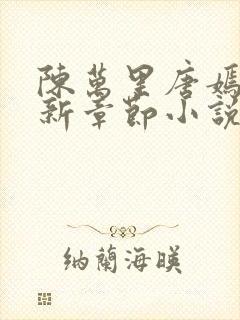 陳萬里唐嫣
新章節小說
納蘭海暎